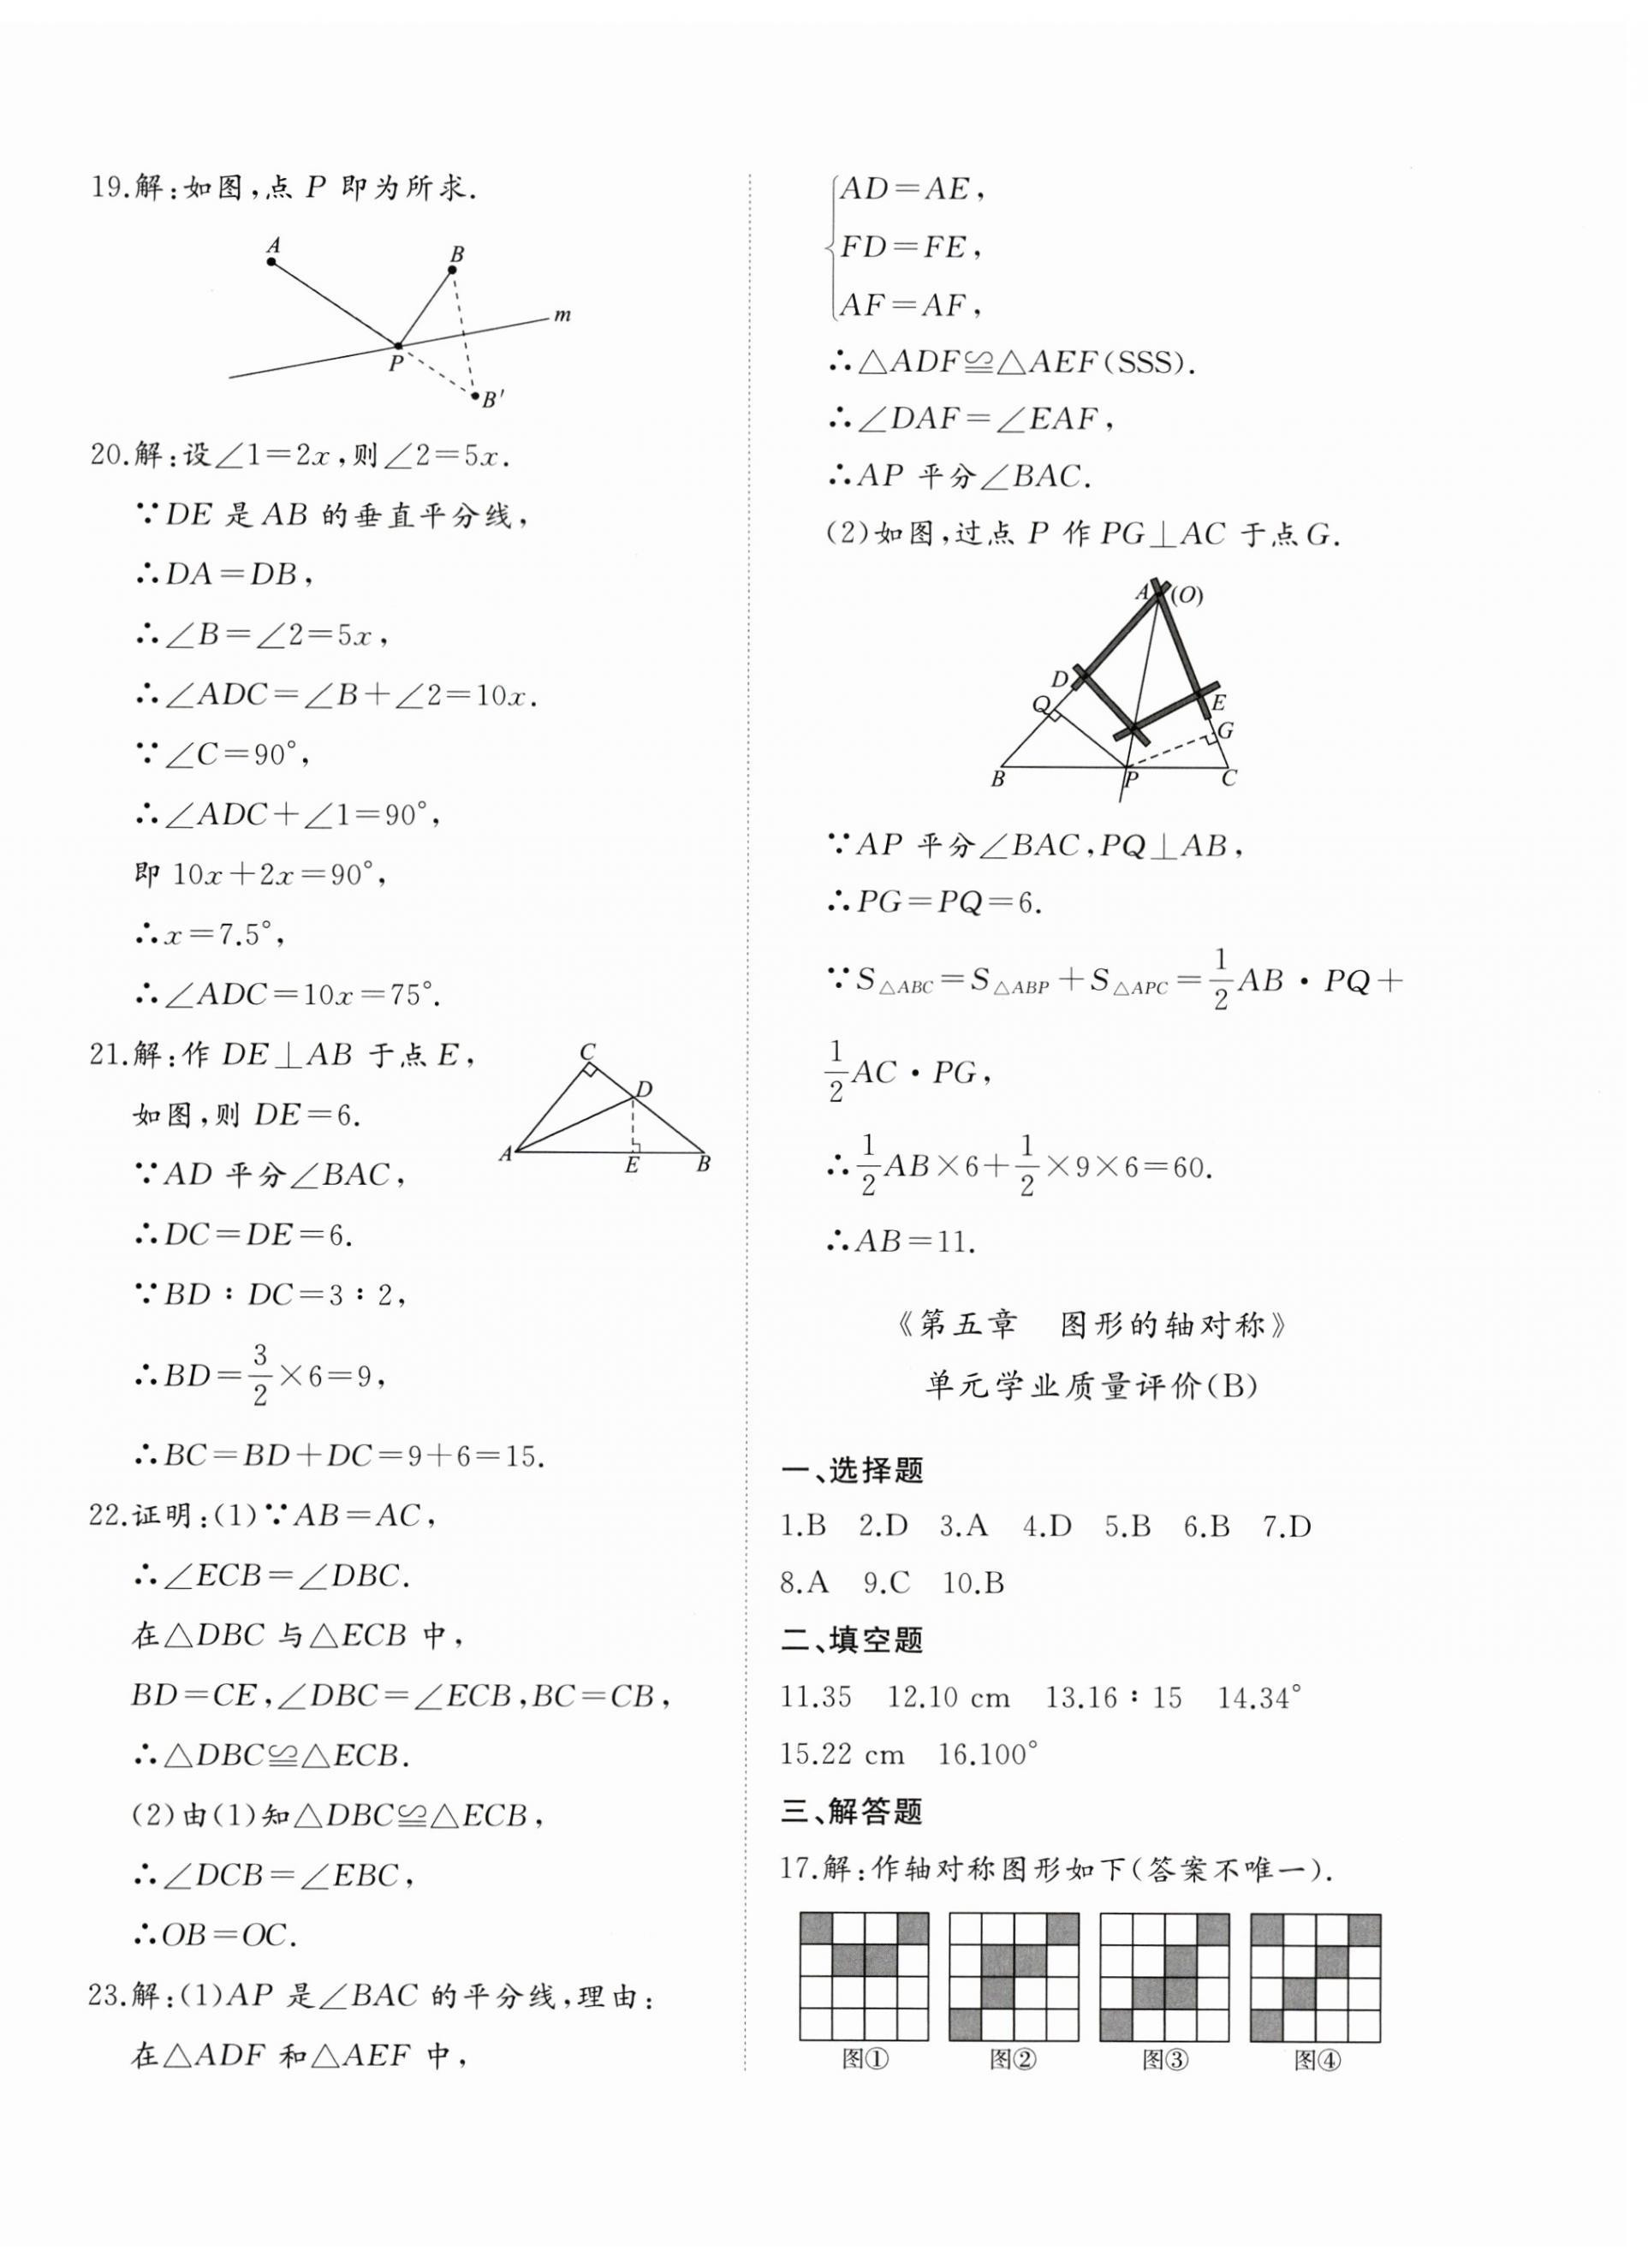 19.解:如图,点 P 即为所求.
A
B
m
P
B′
20.解:设∠1=2x,则∠2=5x.
∵DE 是 AB 的垂直平分线,
∴DA=DB,
∴∠B=∠2=5x,
∴∠ADC=∠B+∠2=10x.
∵∠C=90°,
∴∠ADC+∠1=90°,
即 10x+2x=90°,
∴x=7.5°,
∴∠ADC=10x=75°.
21.解:作 DE⊥AB 于点 E,
如图,则 DE=6.
∵AD 平分∠BAC,
∴DC=DE=6.
∵BD∶DC=3∶2,
∴BD=3/2×6=9,
∴BC=BD+DC=9+6=15.
C
D
A
E
B
22.证明:(1)∵AB=AC,
∴∠ECB=∠DBC.
在△DBC 与△ECB 中,
BD=CE,∠DBC=∠ECB,BC=CB,
∴△DBC≌△ECB.
(2)由(1)知△DBC≌△ECB,
∴∠DCB=∠EBC,
∴OB=OC.
23.解:(1)AP 是∠BAC 的平分线,理由:
在△ADF 和△AEF 中,
AD=AE,
FD=FE,
AF=AF,
∴△ADF≌△AEF(SSS).
∴∠DAF=∠EAF,
∴AP 平分∠BAC.
(2)如图,过点 P 作 PG⊥AC 于点 G.
A (O)
D
Q
E
G
B
P
C
∵AP 平分∠BAC,PQ⊥AB,
∴PG=PQ=6.
∵S△ABC=S△ABP+S△APC=1/2AB·PQ+
1/2AC·PG,
∴1/2AB×6+1/2×9×6=60.
∴AB=11.
《第五章 图形的轴对称》
单元学业质量评价(B)
一、选择题
1.B 2.D 3.A 4.D 5.B 6.B 7.D
8.A 9.C 10.B
二、填空题
11.35 12.10 cm 13.16∶15 14.34°
15.22 cm 16.100°
三、解答题
17.解:作轴对称图形如下(答案不唯一).
图① 图② 图③ 图④